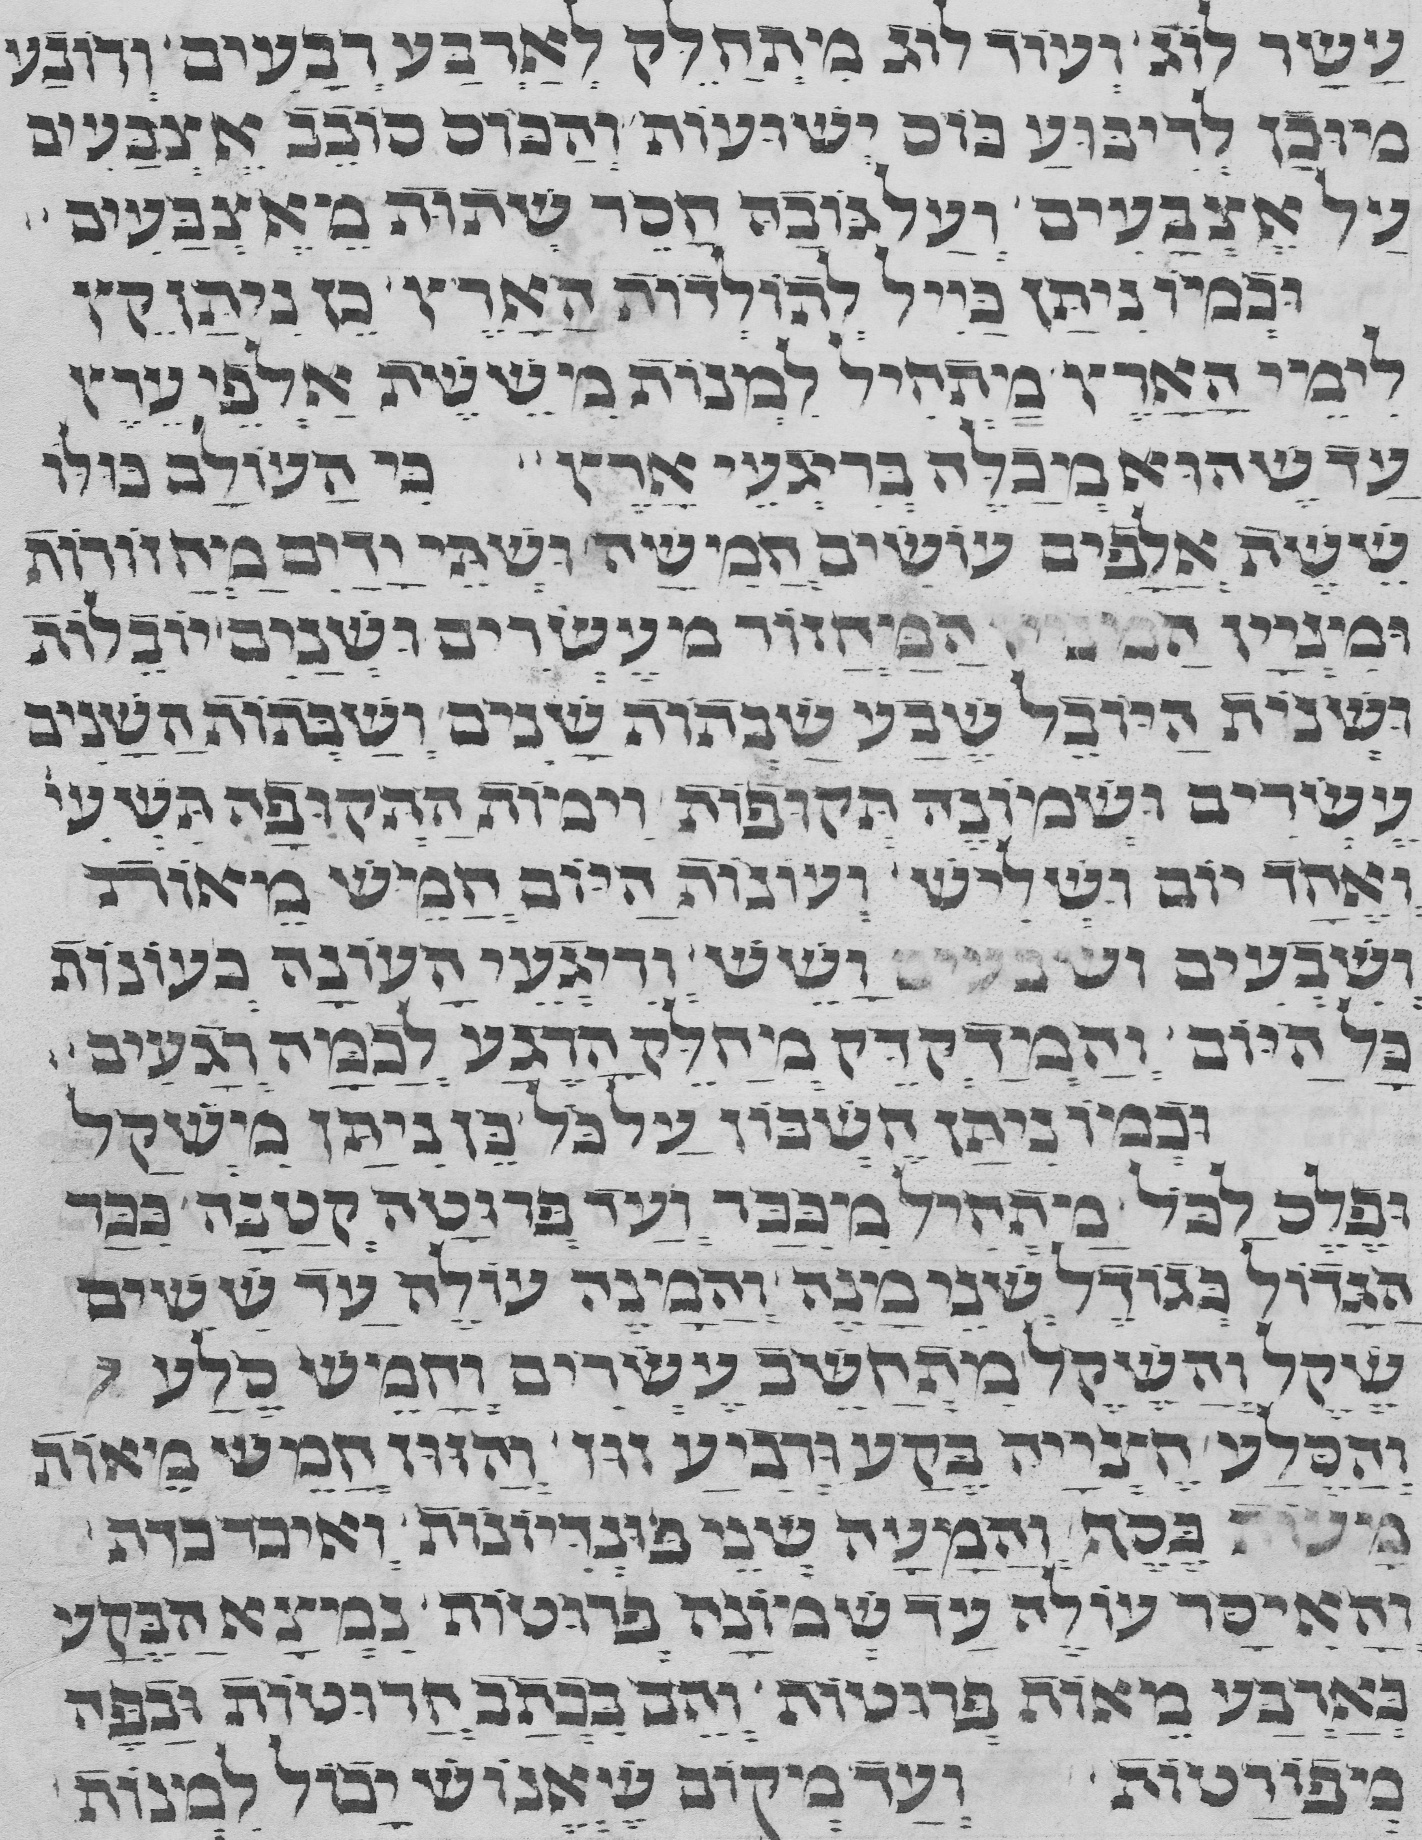 עַשַר לוֹג׳ וְעוֹד לוֹג מִתְחַלֵק לְאַרְבַע רְבָעִים׳ וְרוֹבַע
מִיוּבָן לְרִיבּוּעַ כּוֹס יְשׁוּעוֹת׳ וְהַכּוֹס סוֹבֵב אֶצְבָּעִים
עַל אֶצְבָּעִים׳ וְעַל גּוֹבַהּ חָסֵר שְׁתוּת מֵאֶצְבָּעִים׳
וּכְמוֹ נִיתַּן כַּיִיל לְתוֹלְדוֹת הַאָרֶץ׳ כֵּן נִיתַּן קֵץ
לִימֵי הַאָרֶץ׳ מַתְחִיל לִמְנוֹת מִשֵׁשֶׁת אַלְפֵי עֶרֶץ
עַד שֶהוּא מְכַלֶּה בְּרִיגְעֵי אֶרֶץ׳ כִּי הַעוֹלָם כּוּלוֹ
שֵׁשֶׁת אֲלָפִים עוֹשִׂים חֲמִישָה׳ וּשְׁתֵּי יָדַיִם מִיחֲזוֹרוֹת
וּמִנְיַין הַמִנְיָין הַמַּיחֲזוֹר מֵעֶשְׂרִים וּשְׁנַיִם׳ יוֹבָלוֹת
וּשְׁנוֹת הַיּוֹבֵל שֶׁבַע שַׁבְּתוֹת שָׁנִים׳ וְשַׁבְּתוֹת הַשָׁנִים
עֶשְׂרִים וּשְׁמוֹנֶה תְּקוּפוֹת׳ וִימוֹת הַתְּקוּפָה תִּשְׁעִי׳
וְאֶחַד יוֹם וּשְׁלִישׁ׳ וְעוֹנוֹת הַיּוֹם חֲמֵישׁ מֵאוֹת
וְשִׁבְעִים ושבעים וָשֵׁשׁ׳ וְרִיגְעֵי הָעוֹנָה כְּעוֹנוֹת
כָּל הַיּוֹם׳ וְהַמְידַקְדֵּק מְיחַלֵּק הָרֶגַע לְכַמָּה רְגָעִים׳
וּכְמוֹ נִיתַּן חֶשְׁבּוֹן עַל כֹּל׳ כֵּן נִיתַּן מִישְׁקַל
וּפֶלֶס לַכֹּל׳ מַיתְחִיל מִכִּכַּר וְעַד פְּרוּטָה קְטַנָּה׳ כִּכַּר
הַגָּדוֹל כְּגוֹדֶל שְׁנֵי מָנֶה׳ וְהַמָּנֶה עוֹלֶה עַד שִׁשִּׁים
שֶׁקֶל וְהַשֶּׁקֶל מִתְחַשֵּׁב עֶשְׂרִים וְחָמֵישׁ סֶלַע
וְהַסֶּלַע׳ חֶצְיָיהּ בֶּקַע וּרְבִיעַ זוּז׳ וְהַזּוּז חֲמֵשׁ מֵאוֹת
מָעוֹת כֶּסֶף׳ וְהַמָּעָה שְׁנֵי פּוּנְדְיוֹנוֹת׳ וְאִיסָר כדת׳
וְהָאִיסָר עוֹלֶה עַד שְׁמוֹנָה פְּרוּטוֹת׳ נִמְצָא הַבֶּקַע
כְּאַרְבַּע מֵאוֹת פְּרוּטוֹת׳ וְהֵם בַּכְּתָב חֲרוּטוֹת וּבַפֶּה
מְיפוֹרָטוֹת׳ וְעַד מְקוֹם שֶׁאֱנוֹשׁ יָכוֹל לִמְנוֹת׳